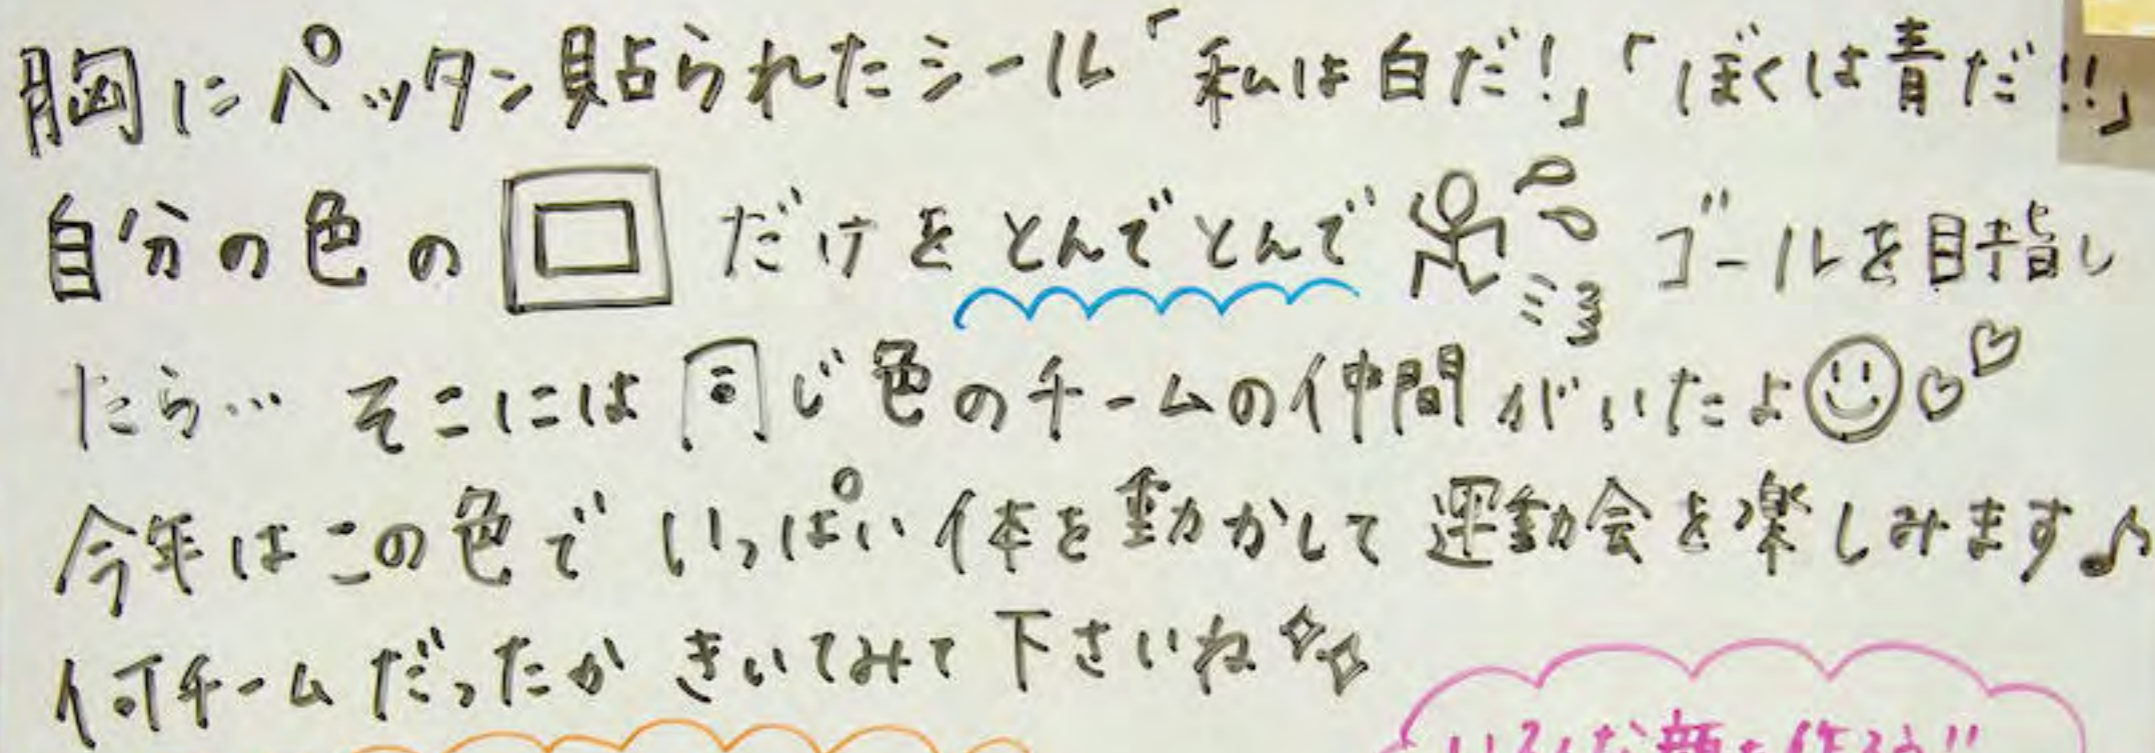 胸にペッタン貼られたシール「私は白だ!」「ぼくは青だ!!」
自分の色の だけをとんでとんで ゴールを目指し
たら… そこには同じ色のチームの仲間がいたよ
今年はこの色でいっぱい体を動かして運動会を楽しみます♪
何チームだったかきいてみて下さいね